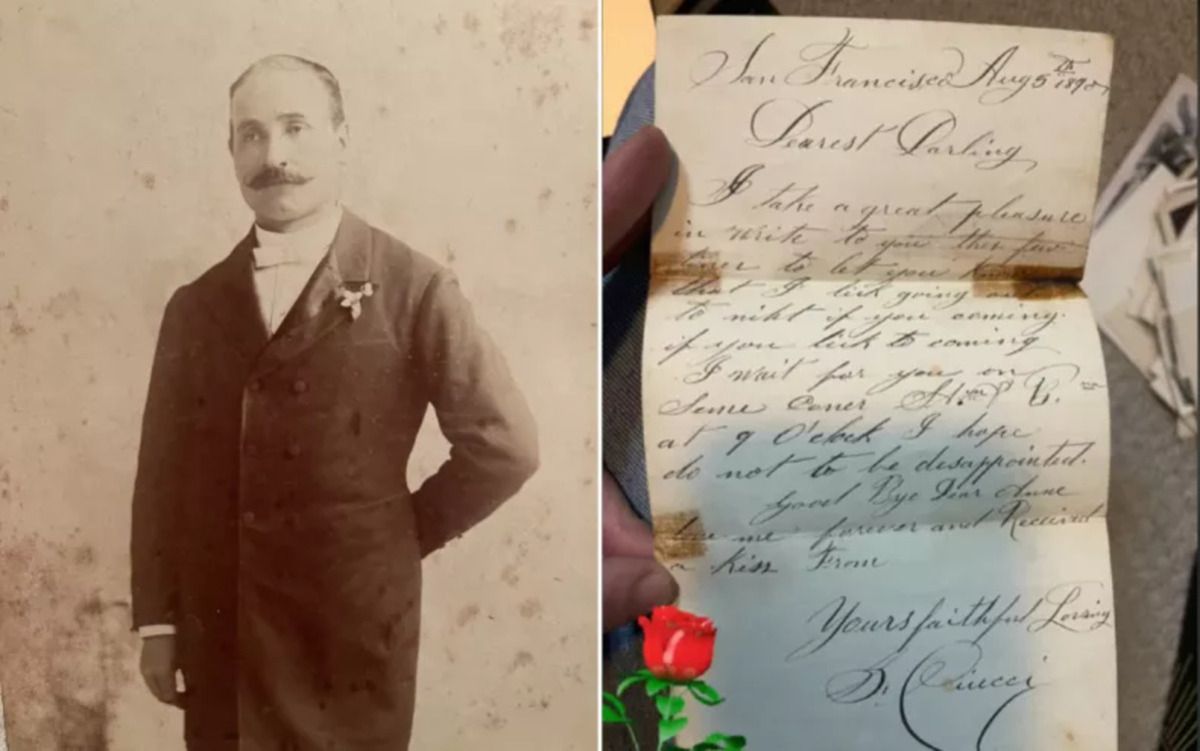 San Francisco Aug 5th 1890
Dearest Darling
I take a great pleasure
in write to you this few
lines to let you know
that I lick going out
to niht if you coming.
if you lick to coming
I wait for you on
Same Coner
at 9 O'clock I hope
do not to be disappointed.
Good Bye Dear Anne
love me forever and Received
a Kiss From
Yours faithful Loving
D. Ciucci